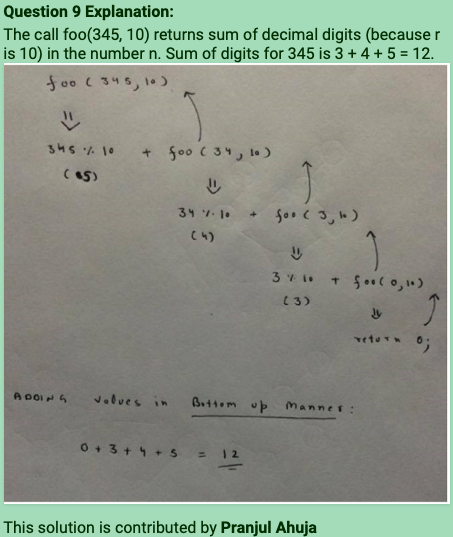 Question 9 Explanation:
The call foo(345, 10) returns sum of decimal digits (because r
is 10) in the number n. Sum of digits for 345 is 3 + 4 + 5 = 12.
foo ( 345, 10 )
345 % 10 + foo ( 34, 10 )
(5)
34 % 10 + foo ( 3, 10 )
(4)
3 % 10 + foo(0, 10)
(3)
return 0;
ADDING values in Bottom up manner:
0 + 3 + 4 + 5 = 12
This solution is contributed by Pranjul Ahuja